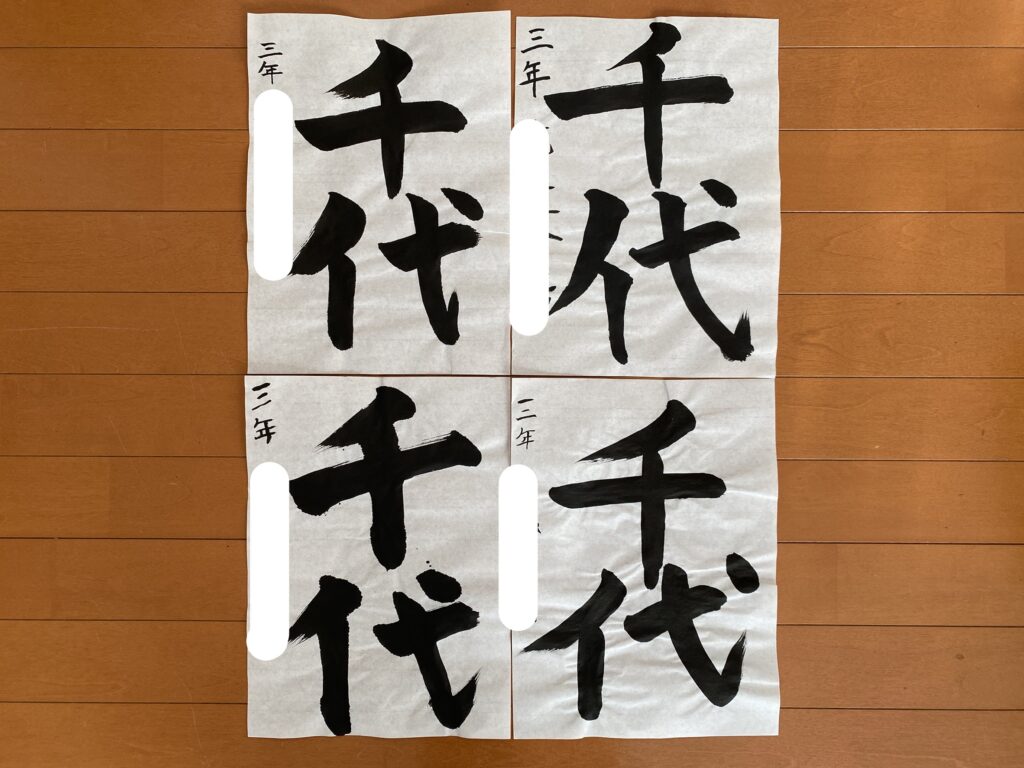 千代
三年
千代
三年
千代
三年
千代
三年